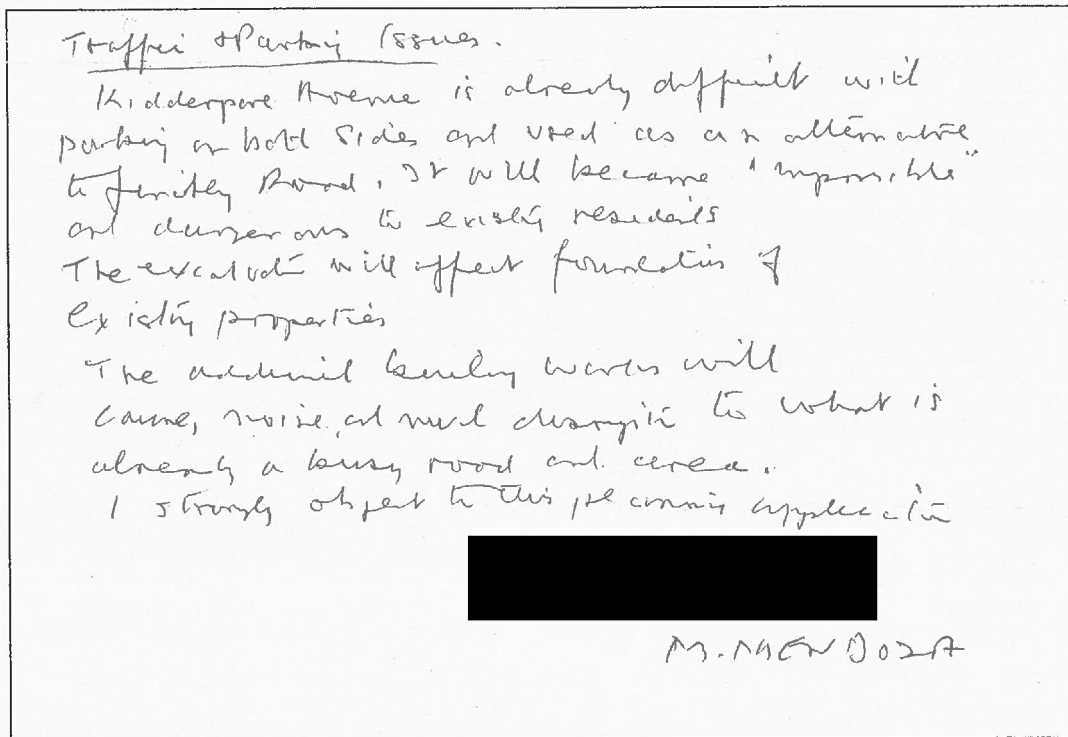 Traffic & Parking Issues.
Kidderpore Avenue is already difficult with
parking on both sides and used as an alternative
to Finchley Road. It will become "impossible"
and dangerous to existing residents
The excavation will affect foundations of
existing properties
The additional building works will
cause, noise, and disruption to what is
already a busy road and area.
I strongly object to this planning application
M. MENDOZA